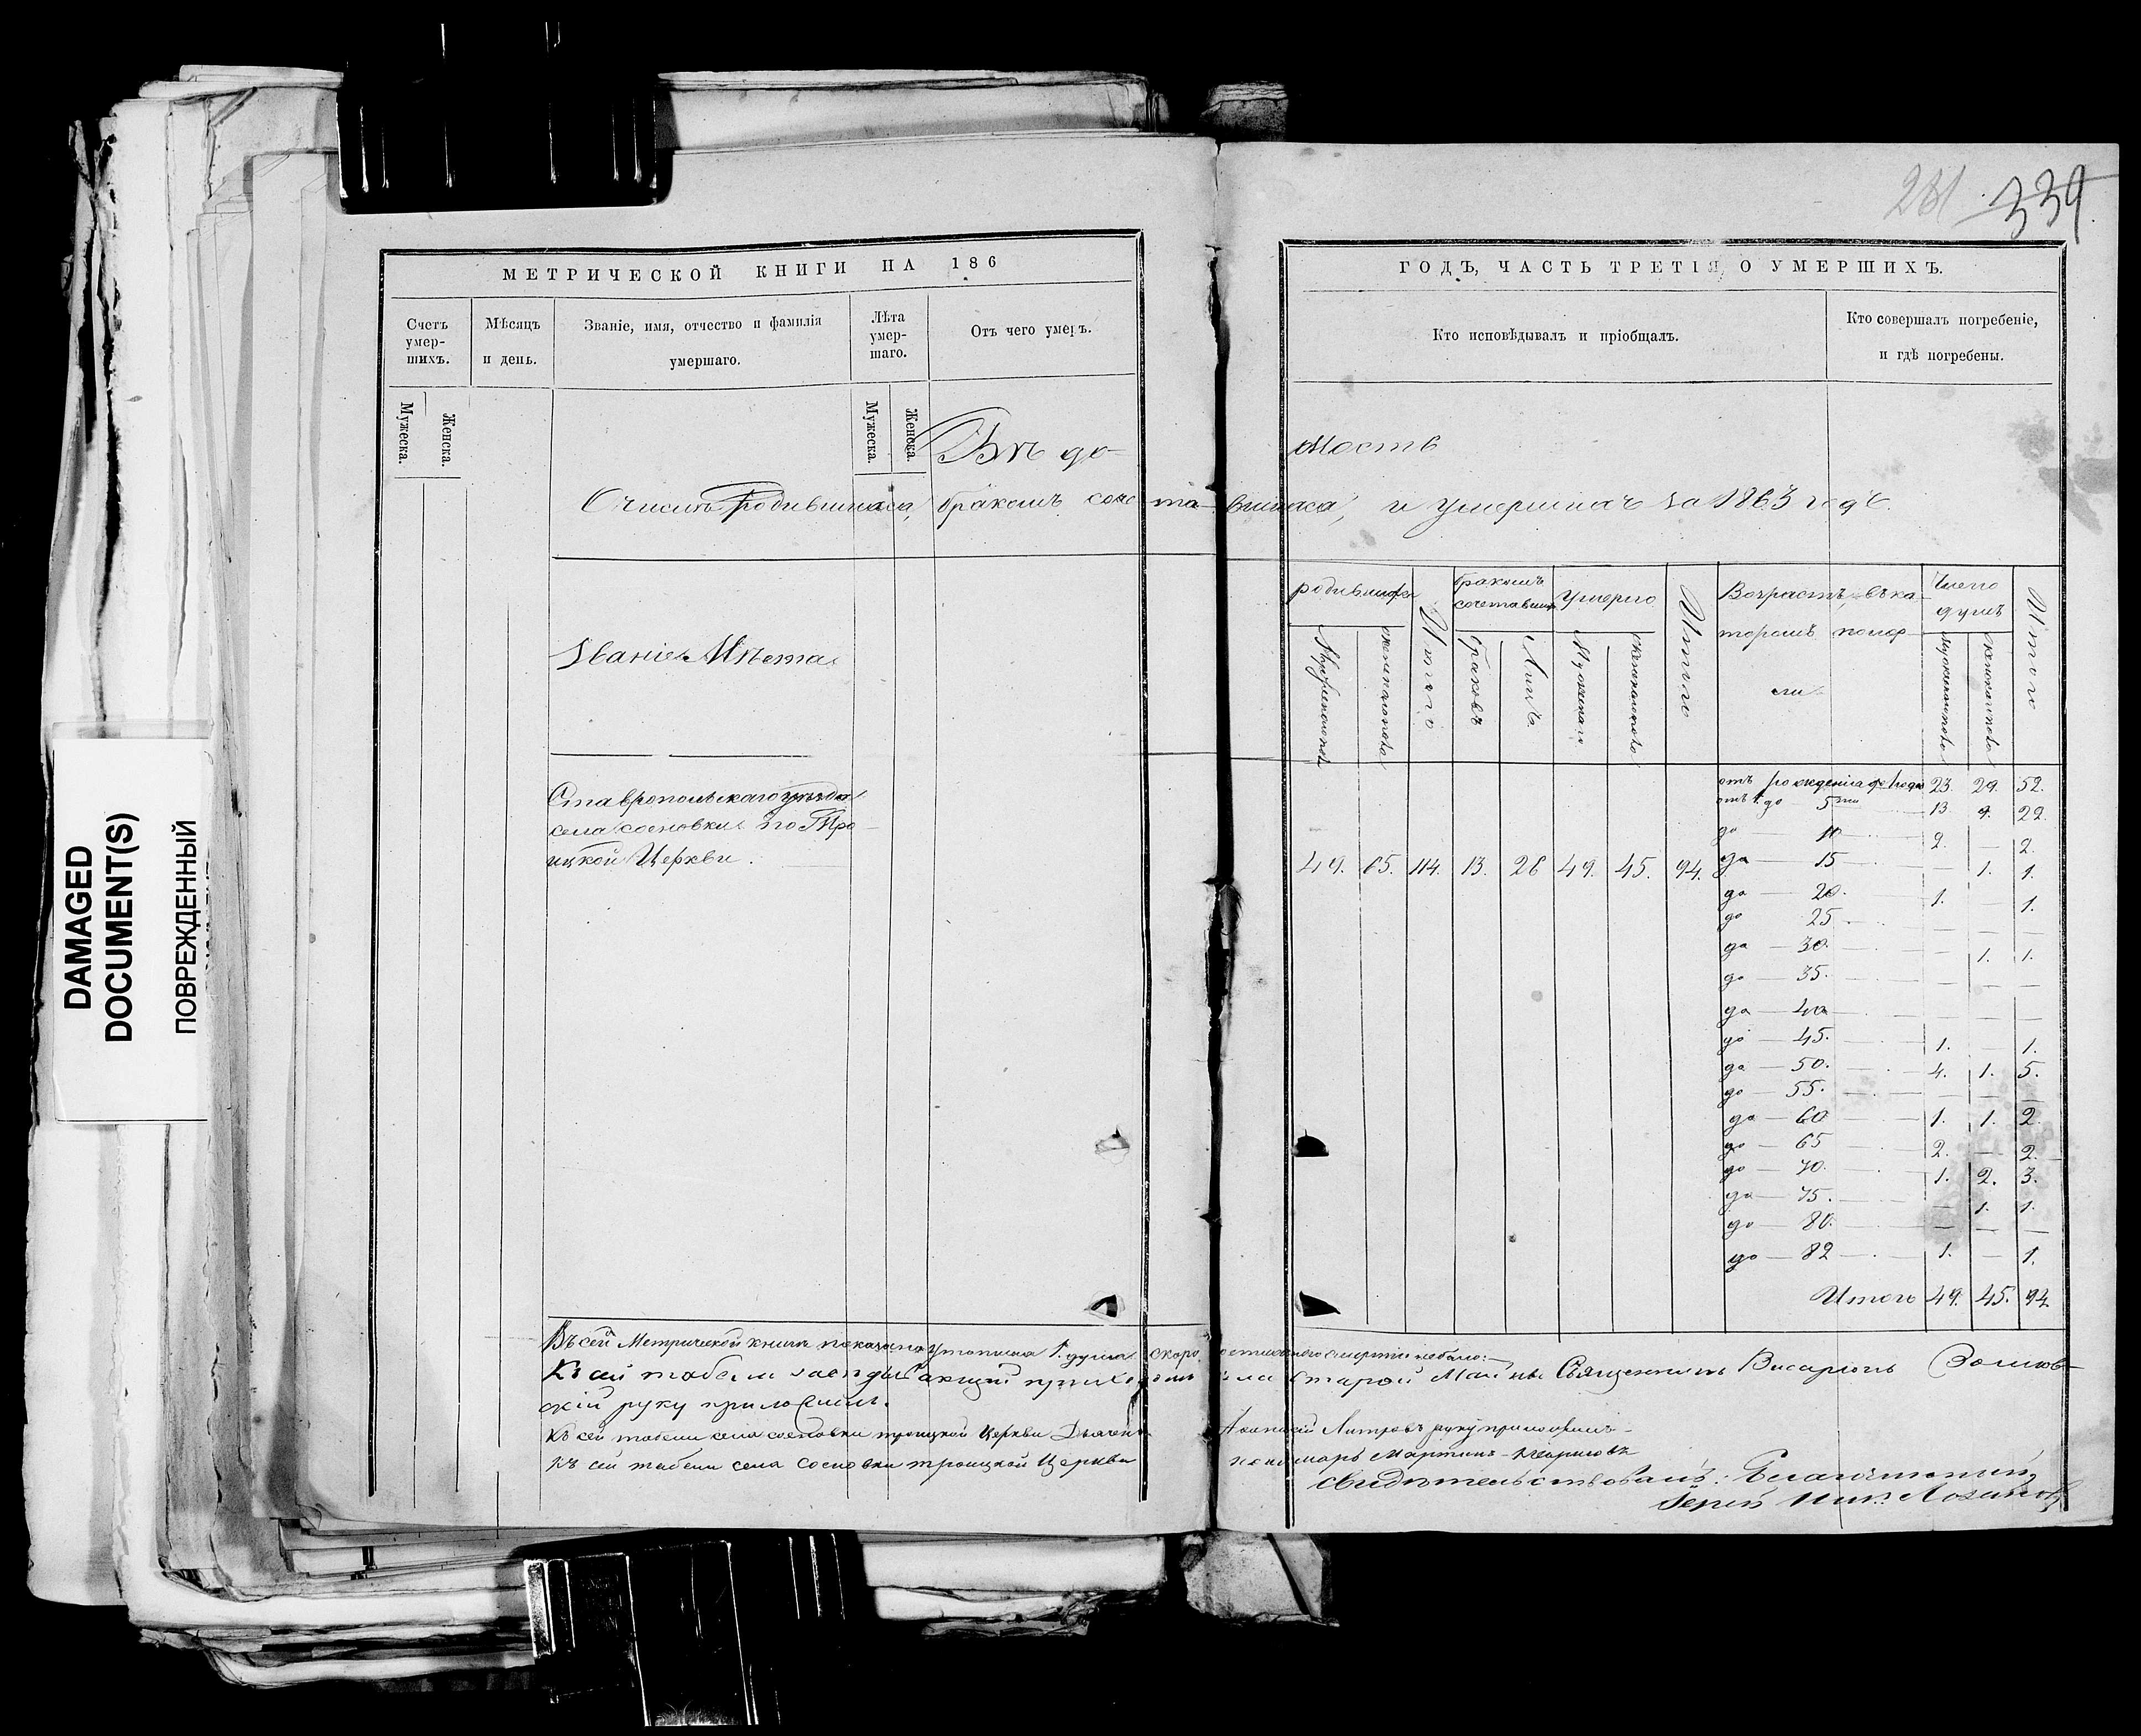 281 339
МЕТРИЧЕСКОЙ КНИГИ НА 186
ГОДЪ, ЧАСТЬ ТРЕТІЯ, О УМЕРШИХЪ.
Счетъ умер-шихъ.
Мужеска.
Женска.
Мѣсяцъ и день.
Званіе, имя, отчество и фамилія умершаго.
Лѣта умер-шаго.
Мужеска.
Женска.
Отъ чего умеръ.
Кто исповѣдывалъ и пріобщалъ.
Кто совершалъ погребеніе, и гдѣ погребены.
Вѣдо-
мость
О числѣ родившихся, бракомъ соче-та-вшихся, и умершихъ за 1863 годъ.
Званіе Мѣста
родившихся
Итого
бракомъ сочетавших
Браковъ
Лицъ
умерло
Мужескаго
Женскаго
Итого
Возрастъ, въ ка-
торомъ помер-
ли
Число душъ
Итого
Ставропольскаго уѣзда
села Сосновки по Тро-
ицкой Церкви.
49. 65. 114. 13. 26 49. 45. 94.
отъ рожденія до года 23. 29. 52.
отъ 1. до 5ти 13. 9. 22.
до 10 2. — 2.
до 15 — 1. 1.
до 20. 1. — 1.
до 25. — — —
до 30. — 1. 1.
до 35. — — —
до 40 — — —
до 45. 1. — 1.
до 50. 4. 1. 5.
до 55. — — —
до 60 1. 1. 2
до 65 2. — 2.
до 70. 1. 2. 3.
до 75. — 1. 1.
до 80. — — —
до 82 1. — 1.
Итого 49. 45. 94.
Въ сей Метрической книгѣ показано утопшая 1. душа скоропостижного смерти небыло:
Къ сей табели завѣдывающій приходомъ села Старой Майны Священникъ Висаріонъ
скій руку приложилъ.
Къ сей табели села Сосновки троицкой Церкви Дьячекъ руку приложилъ
Къ сей табели села Сосновки троицкой Церкви пономарь Мартинъ
свидѣтельствовалъ: Благочинный,
Іерей Ник.
DAMAGED
DOCUMENT(S)
ПОВРЕЖДЕННЫЙ